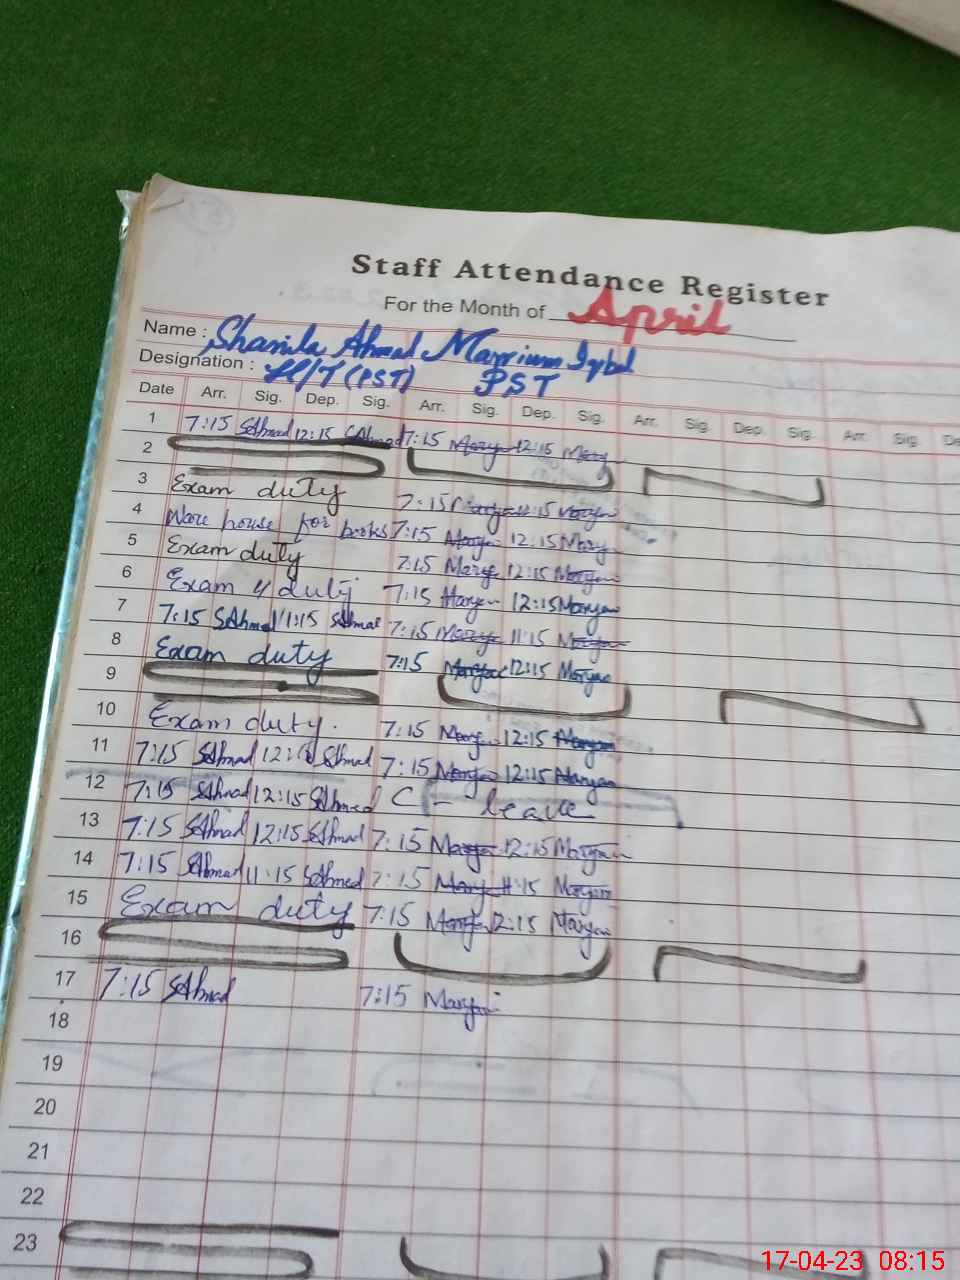 Staff Attendance Register
For the Month of April
Name : Shamila Ahmad Marrium Iqbal
Designation : H/T (PST) PST
Date Arr. Sig. Dep. Sig. Arr. Sig. Dep. Sig. Arr. Sig. Dep. Sig. Arr. Sig. De
1 7:15 SAhmad 12:15 SAhmad 7:15 Maryam 12:15 Maryam
2
3 Exam duty 7:15 Maryam 11:15 Maryam
4 Ware house for books 7:15 Maryam 12:15 Maryam
5 Exam duty 7:15 Maryam 12:15 Maryam
6 Exam duty 7:15 Maryam 12:15 Maryam
7 7:15 SAhmad 11:15 SAhmad 7:15 Maryam 11:15 Maryam
8 Exam duty 7:15 Maryam 12:15 Maryam
9
10 Exam duty. 7:15 Maryam 12:15 Maryam
11 7:15 SAhmad 12:15 SAhmad 7:15 Maryam 12:15 Maryam
12 7:15 SAhmad 12:15 SAhmad C - leave
13 7:15 SAhmad 12:15 SAhmad 7:15 Maryam 12:15 Maryam
14 7:15 SAhmad 11:15 SAhmad 7:15 Maryam 11:15 Maryam
15 Exam duty 7:15 Maryam 12:15 Maryam
16
17 7:15 SAhmad 7:15 Maryam
18
19
20
21
22
23
17-04-23 08:15